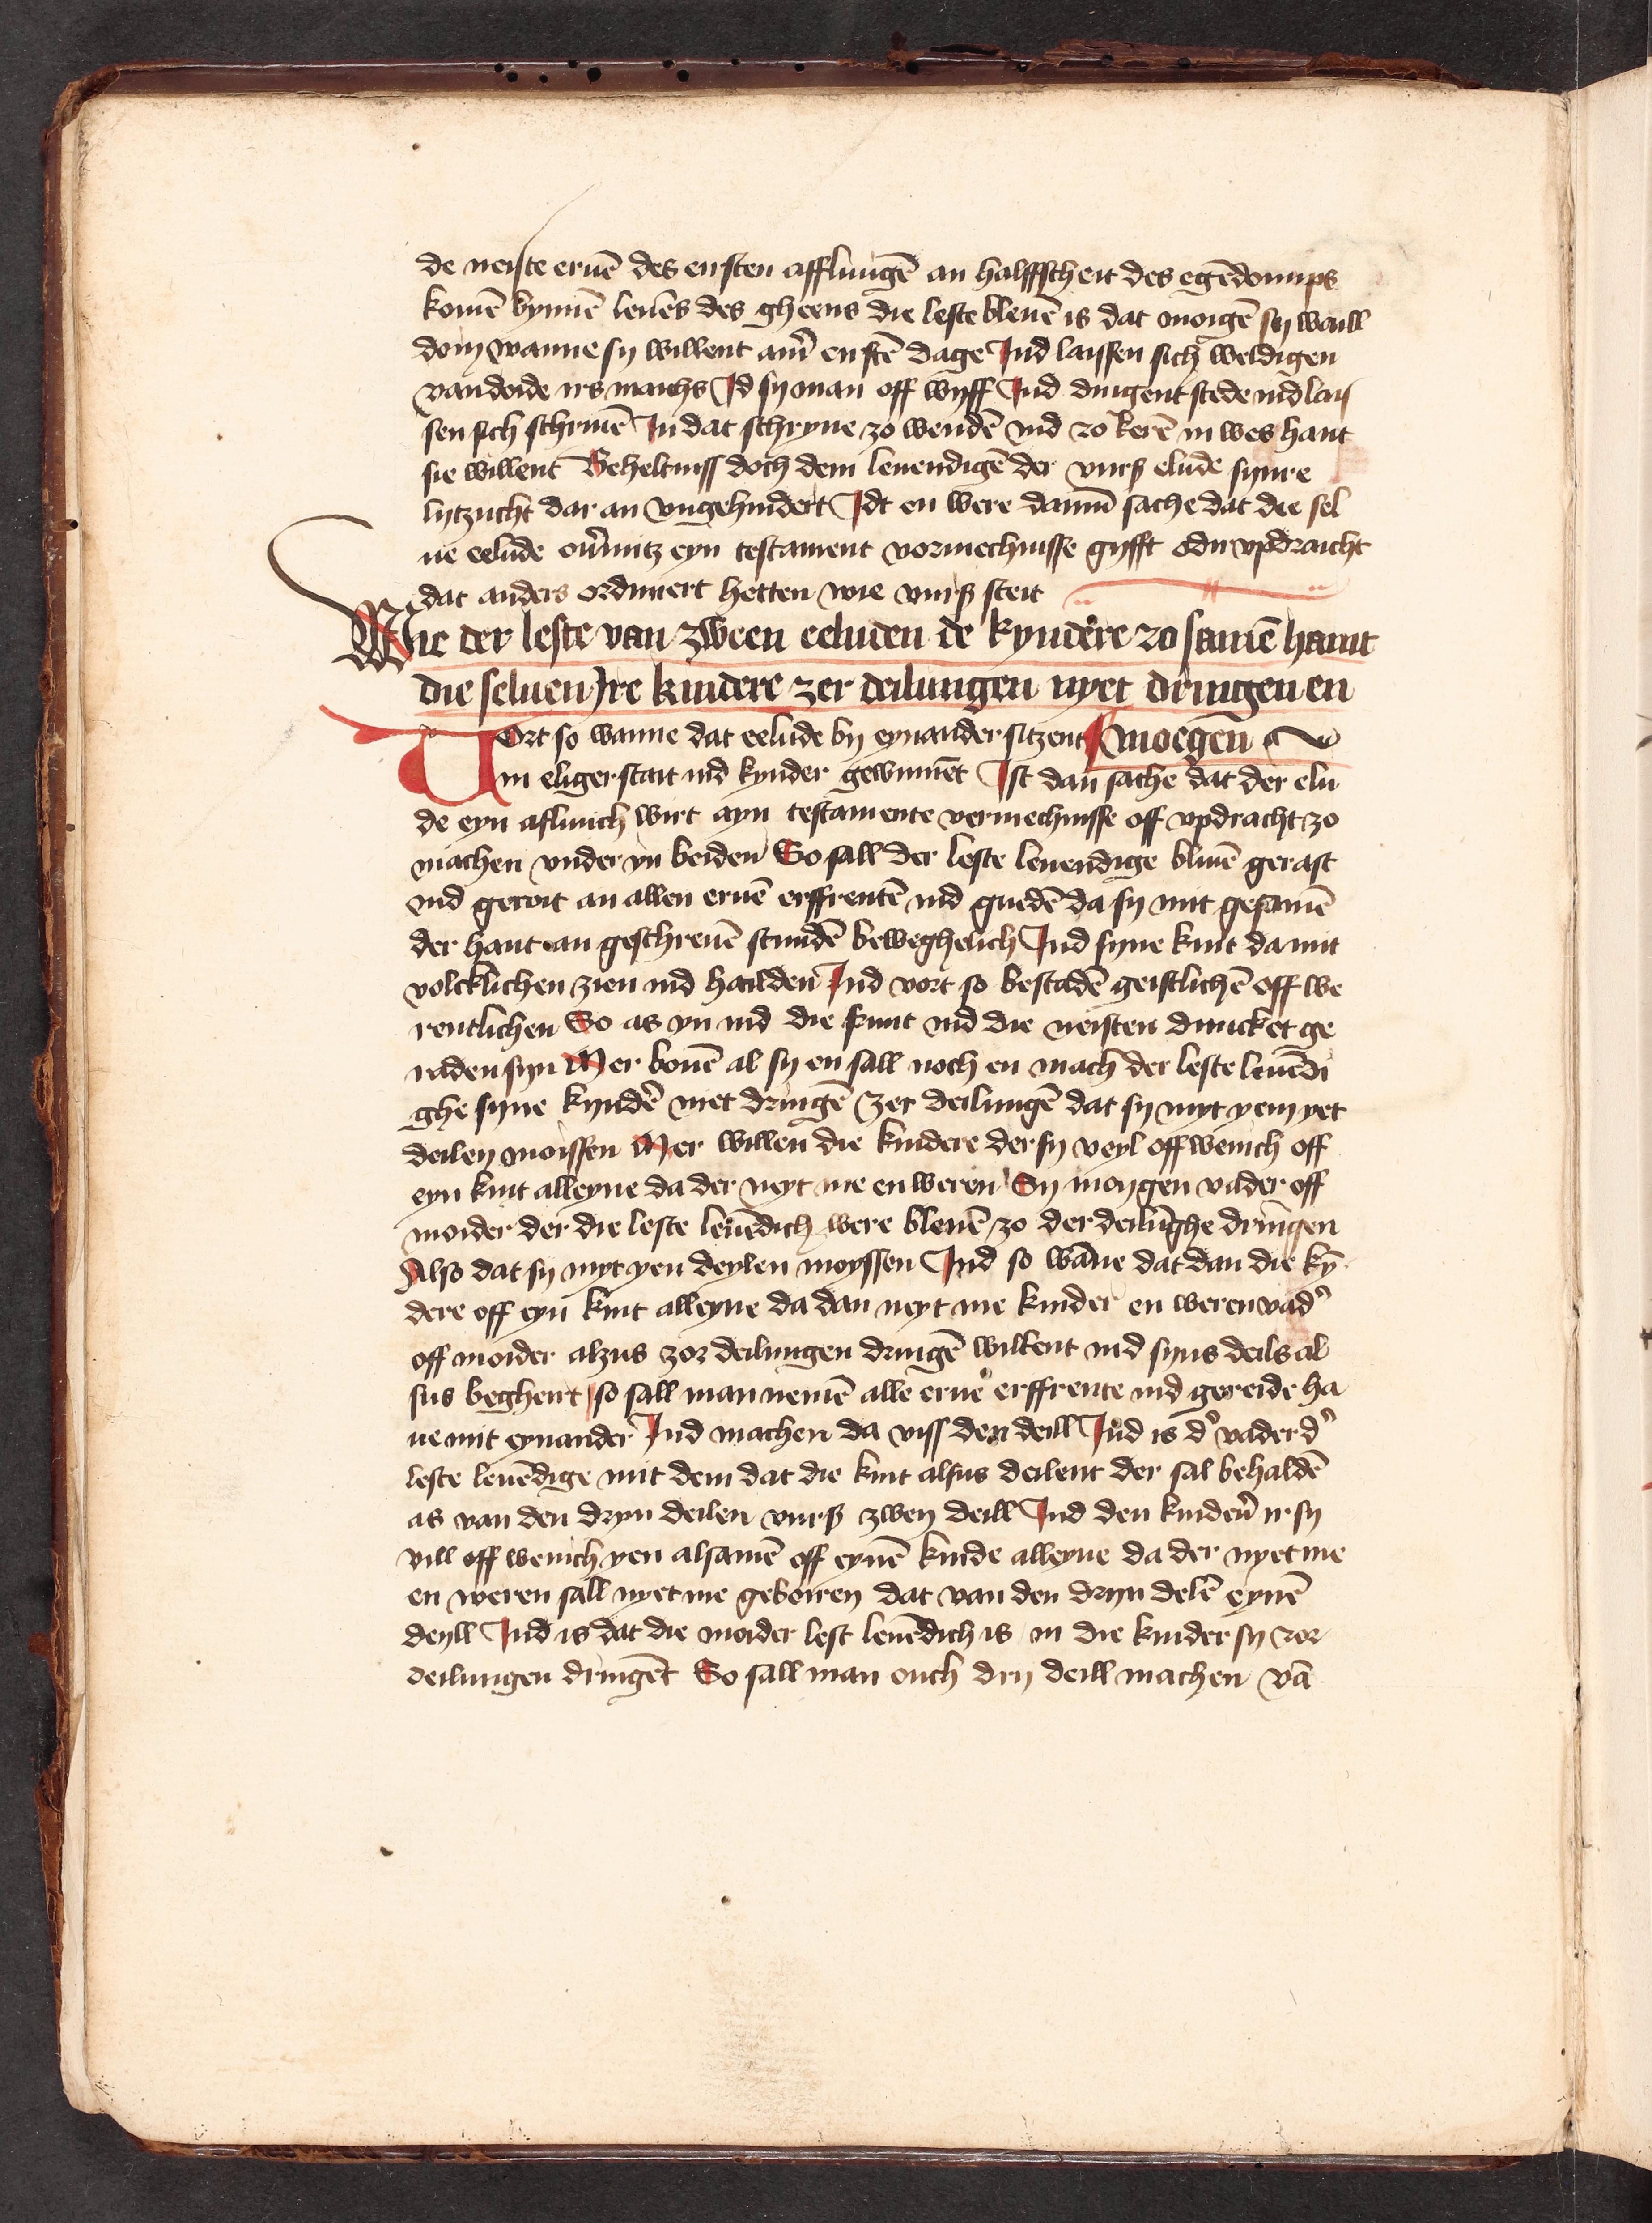 de neiste eruē des eirsten afflıuıgē an halffscheit des egēdomps
komē bynnē leuēs des gheens die leste bleuē is dat moigē sy waill
doin wanne sy willent am̄ eirstē dage Ind laissen sich weldigen
van doide irs maichs Id sy man off wyff Ind dingent stede ind lais
sen sich schriuē In dat schryne zo wendē ind zo kerē in wes hant
sie willent Beheltniss doch dem leuendigē der vurß elude synre
lytzucht dar an vngehindert Idt en were dannn̄ sache dat die sel
ue eelude ouermitz eyn testament vormechnisse gyfft oder vpdraicht
dat anders ordiniert hetten wie vurß steit
Wie der leste van zween eeluden de kyndere zo samē haint
die seluen Ire kindere zer deilungen nyet dringen en
Vort so wanne dat eelude by eynander sitzent moegen
in eliger stait ind kynder gewinnēt Ist dan sache dat der elu
de eyn afliuich wirt ayn testamente vermechnisse off vpdracht zo
machen vnder yn beiden So sall der leste leuendige bliuē gerast
ind geroit an allen eruē erffrentē ind guedē da sy mit gesamē
der hant an geschreuē stundē beweghelich Ind syne kint da mit
volcklichen zien ind halden Ind vort so bestadē geistlichē off we
rentlichen So as yn ind die frunt ind die neisten duncket ge
raden syn Mer bouē al sy en sall noch en mach der leste leuēdi
ghe syne kyndē niet dringē zer deilungē dat sy myt yem yet
deilen moissen Mer willen die kindere der sy veyl off wenich off
eyn kint alleyne da der neyt me en weren Sy moygen vader off
moider der die leste leuēdich were bleuē zo der deilūghe dringen
Also dat sy myt yen deylen moyssen Ind so wāne dat dan die kȳ
dere off eyn kint alleyne da dan neyt me kinder en weren vad'
off moider alzus zor deilungen dringē willent ind syns deils al
sus beghert so sall man nemē alle erue erffrente ind gereide ha
ue mit eynander Ind machen da viss den deill Ind is d' vader d'
leste leuēdige mit dem dat die kint alsus deilent der sal behaldē
as van den dryn deilen vurß zwey deill Ind den kinderē ir sy
vill off wenich yen alsamē off eynē kinde alleyne da der nyet me
en weren sall nyet me geboiren dat van den dryn delē eynē
deyll Ind is dat die moider lest leuēdich is in die kinder sy zor
deilungen dringēt So sall man ouch dry deill machen vā